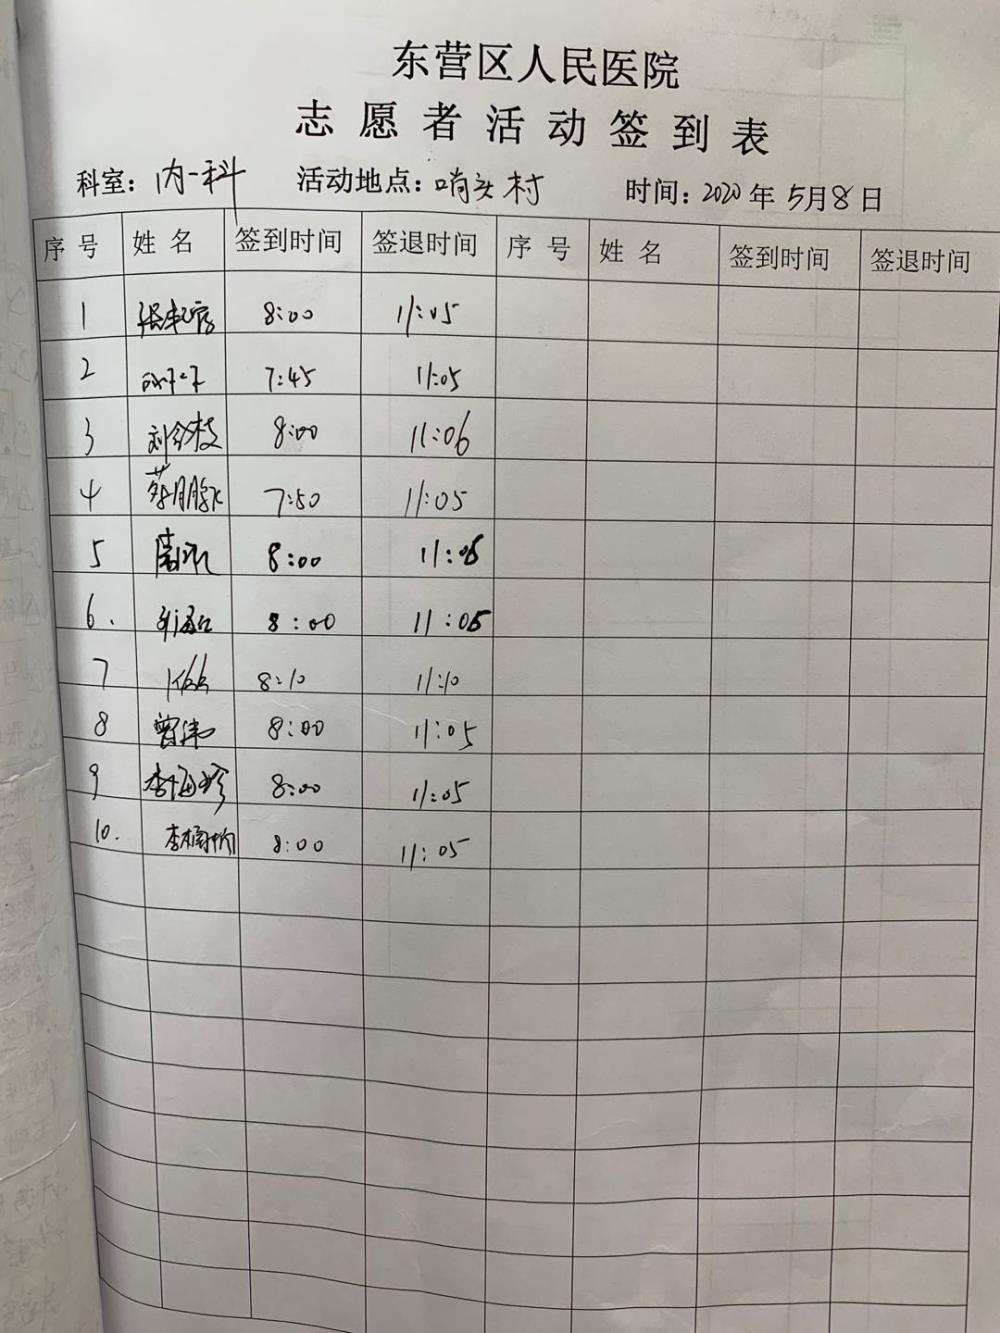 东营区人民医院
志愿者活动签到表
科室：内一科 活动地点：哨头村 时间：2020年5月8日
序号 姓名 签到时间 签退时间 序号 姓名 签到时间 签退时间
1 8:00 11:05
2 7:45 11:05
3 刘 枝 8:00 11:06
4 7:50 11:05
5 8:00 11:05
6. 8:00 11:05
7 8:10 11:10
8 曾伟 8:00 11:05
9 李海珍 8:00 11:05
10. 李 8:00 11:05